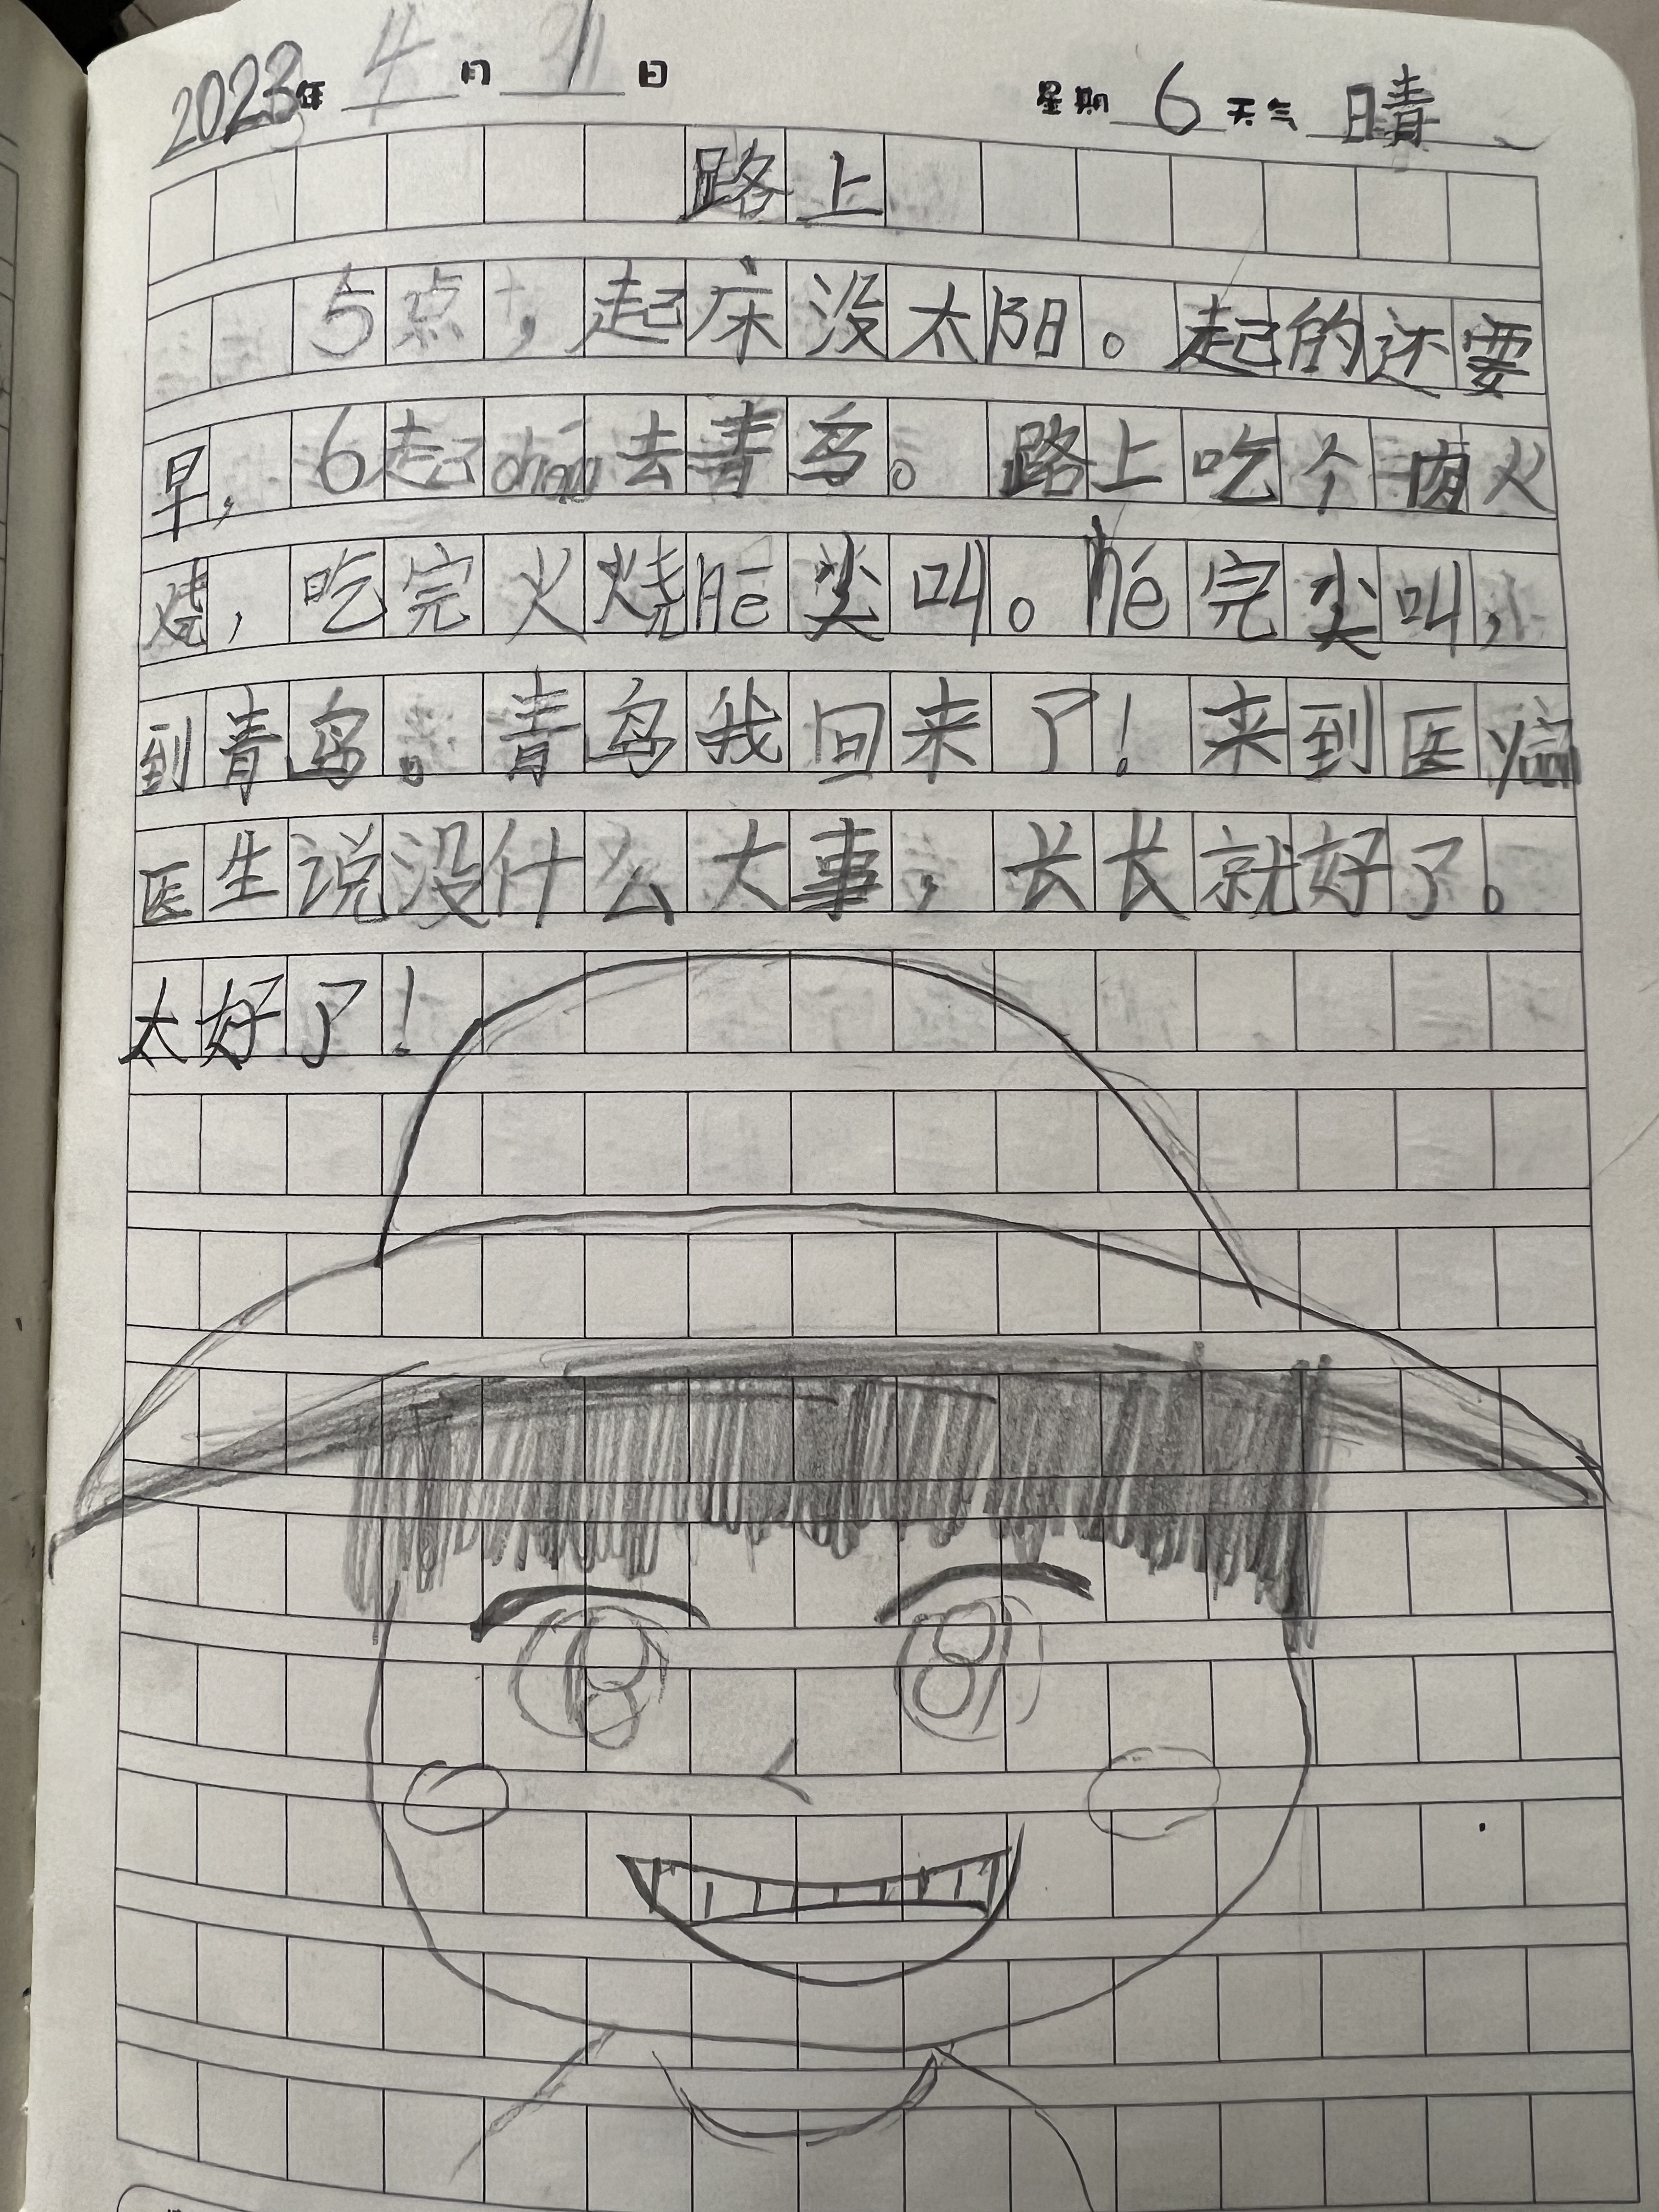 2023年 4月 日 星期 6 天气 晴
路上
5点，起床没太阳。起的还要
早，6起 去青岛。路上吃个肉火
烧，吃完火烧hē尖叫。hē完尖叫，
到青岛。青岛我回来了！来到医yuàn
医生说没什么大事，长长就好了。
太好了！